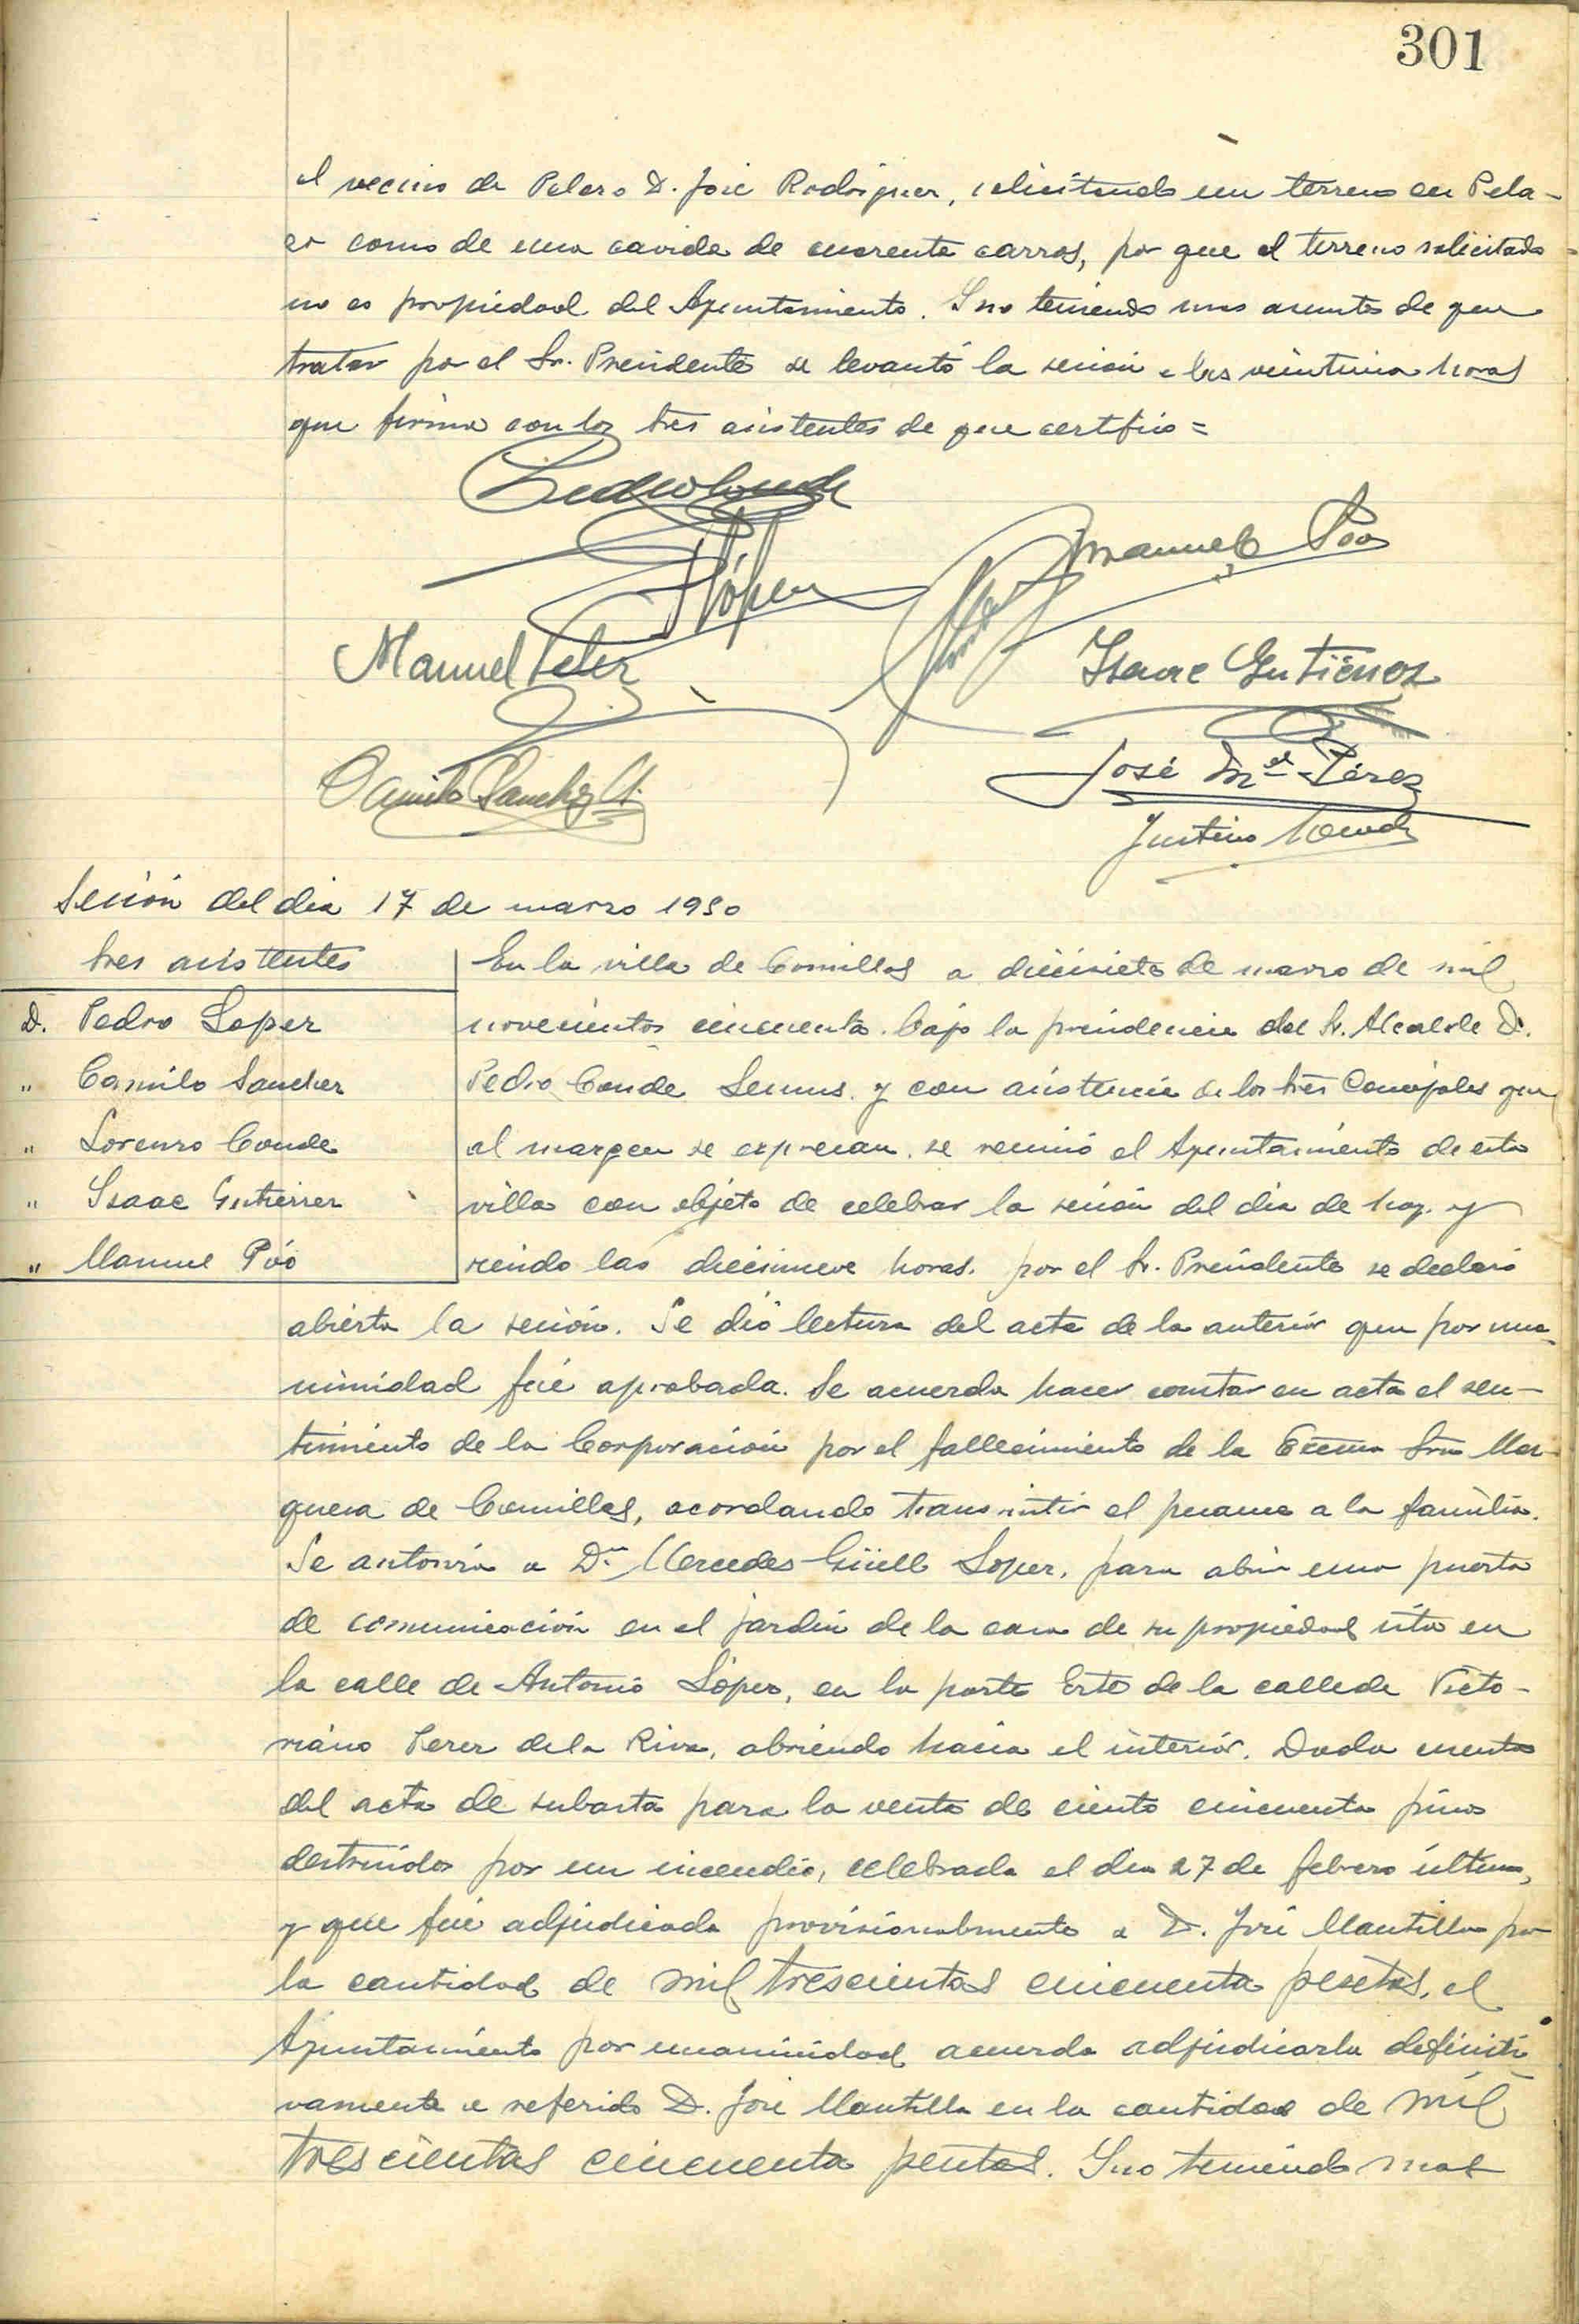 301
el vecino de Pelaro D. José Rodriguez, solicitando un terreno en Pela-
zo como de una cavida de cuarenta carros, por que el terreno solicitado
no es propiedad del Ayuntamiento. Y no teniendo mas asuntos de que
tratar por el Sr. Presidente se levantó la sesion a las veintiuna horas
que firma con los tres asistentes de que certifico =
Pedro Conde
PLópez
Manuel Póo
Manuel Pelez
Isaac Gutiérrez
Camilo Sanchez G.
José Mª Pérez
Justino Conde
Sesión del dia 17 de marzo 1950
tres asistentes
D. Pedro Lopez
" Camilo Sanchez
" Lorenzo Conde
" Isaac Gutierrez
" Manuel Póo
En la villa de Comillas a diecisiete de marzo de mil
novecientos cincuenta. bajo la presidencia del Sr. Alcalde D.
Pedro Conde y con asistencia de los tres Concejales que
al margen se expresan. se reunió el Ayuntamiento de esta
villa con objeto de celebrar la sesión del dia de hoy. y
siendo las diecinueve horas. por el Sr. Presidente se declaró
abierta la sesión. Se dió lectura del acta de la anterior que por una-
nimidad fué aprobada. Se acuerda hacer constar en acta el sen-
timiento de la Corporación por el fallecimiento de la Excma Sra Mar-
quesa de Comillas, acordando transmitir el pesame a la familia.
Se autoriza a Dª Mercedes Güell Lopez, para abrir una puerta
de comunicación en el jardin de la casa de su propiedad sita en
la calle de Antonio López, en la parte Este de la calle de Victo-
riano Perez de la Riva, abriendo hacia el interior. Dada cuenta
del acta de subasta para la venta de ciento cincuenta pinos
destruidos por un incendio, celebrada el dia 27 de febrero último,
y que fué adjudicada provisionalmente a D. José Mantilla por
la cantidad de mil trescientas cincuenta pesetas, el
Ayuntamiento por unanimidad acuerda adjudicarla definiti-
vamente a referido D. José Mantilla en la cantidad de mil
trescientas cincuenta pesetas. Y no teniendo mas